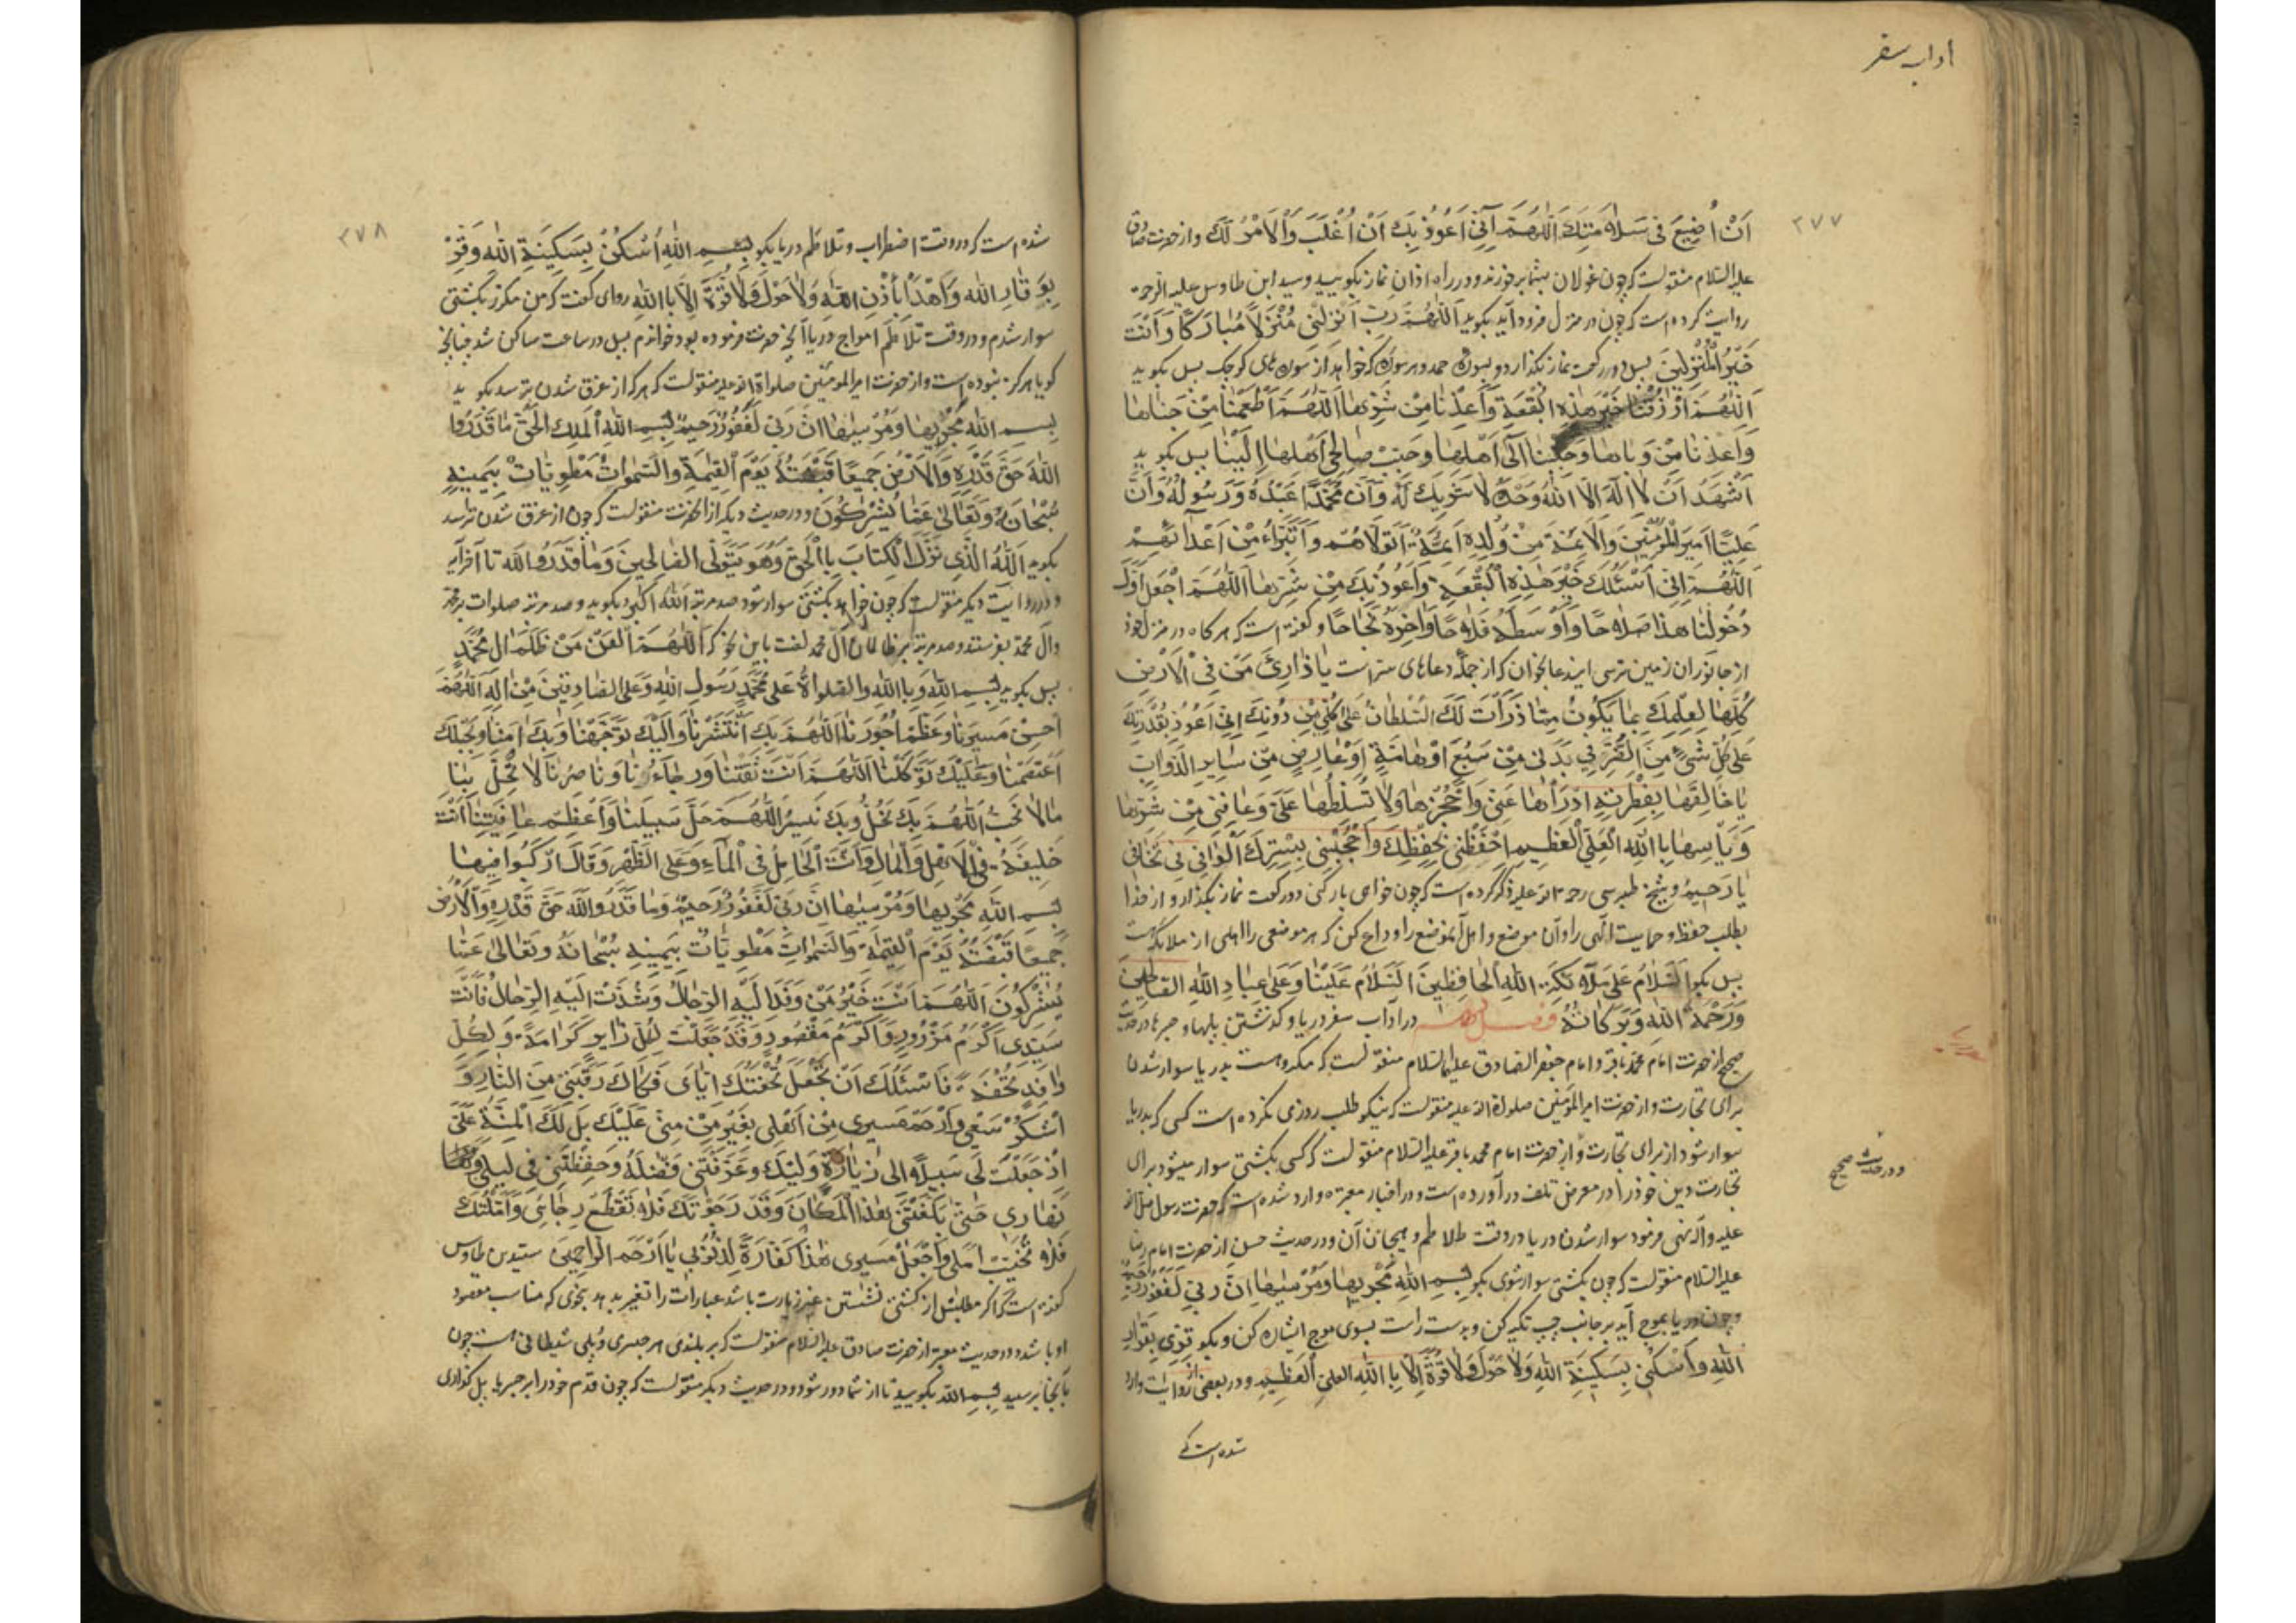 آداب سفر
٣٧٧
اَنْ اُضیعَ فی سَلامَتِکَ اَللّٰهُمَّ اِنّی اَعُوذُ بِکَ اَنْ اُغْلَبَ وَالْاَمْرُ لَکَ و از حضرت صادق
علیه السلام منقولست که چون غولان بشما برخورند در راه اذان نماز بگویید و سید ابن طاوس علیه الرحمه
روایت کرده است که چون در منزل فرود آید بگوید اَللّٰهُمَّ رَبِّ اَنْزِلْنی مُنْزَلاً مُبارَکاً وَاَنْتَ
خَیْرُ الْمُنْزِلینَ پس دو رکعت نماز بگذارد و بسوره حمد و هر سوره که خواهد از سوره های کوچک پس بگوید
اَللّٰهُمَّ ارْزُقْنا خَیْرَ هٰذِهِ الْبُقْعَةِ وَاَعِذْنا مِنْ شَرِّها اَللّٰهُمَّ اَطْعِمْنا مِنْ جَناها
وَاَعِذْنا مِنْ وَباها وَحَبِّبْنا اِلیٰ اَهْلِها وَحَبِّبْ صالِحی اَهْلِها اِلَیْنا پس بگوید
اَشْهَدُ اَنْ لا اِلٰهَ اِلَّا اللهُ وَحْدَهُ لا شَریکَ لَهُ وَاَنَّ مُحَمَّداً عَبْدُهُ وَرَسُولُهُ وَاَنَّ
عَلِیّاً اَمیرَ الْمُؤْمِنینَ وَالْاَئِمَّةَ مِنْ وُلْدِهِ اَئِمَّةٌ اَتَوَلّاهُمْ وَاَتَبَرَّاُ مِنْ اَعْدائِهِمْ
اَللّٰهُمَّ اِنّی اَسْئَلُکَ خَیْرَ هٰذِهِ الْبُقْعَةِ وَاَعُوذُ بِکَ مِنْ شَرِّها اَللّٰهُمَّ اجْعَلْ اَوَّلَ
دُخُولِنا هٰذا صَلاحاً وَاَوْسَطَهُ فَلاحاً وَاٰخِرَهُ نَجاحاً و گفته است که هرگاه در منزل خود
از جانوران زمین ترسی ایندعا بخوان که از جمله دعاهای سر است یا ذارِئَ مَنْ فِی الْاَرْضِ
کُلِّها لِعِلْمِکَ بِما یَکُونُ مِمّا ذَرَأْتَ لَکَ السُّلْطانُ عَلیٰ کُلِّ مَنْ دُونَکَ اِنّی اَعُوذُ بِقُدْرَتِکَ
عَلیٰ کُلِّ شَیْءٍ مِنَ الضُّرِّ فی بَدَنی مِنْ سَبُعٍ اَوْ هامَّةٍ اَوْ عارِضٍ مِنْ سایِرِ الدَّوابِّ
یا خالِقَها بِفِطْرَتِهِ ادْرَأْها عَنّی وَاحْجُزْها وَلا تُسَلِّطْها عَلَیَّ وَعافِنی مِنْ شَرِّها
وَبَأْسِها یا اَللهُ الْعَلِیُّ الْعَظیمُ احْفَظْنی بِحِفْظِکَ وَاحْجُبْنی بِسِتْرِکَ الْوافی مِنْ مَخاوِفی
یا رَحیمُ و شیخ طبرسی رحمة الله علیه ذکر کرده است که چون خواهی بار کنی دو رکعت نماز بگذار و از خدا
بطلب حفظ و حمایت الٓهی را و آن موضع و اهل آنموضع را وداع کن که هر موضعی را اهلی از ملائکه هست
پس بگو اَلسَّلامُ عَلیٰ مَلائِکَةِ اللهِ الْحافِظینَ اَلسَّلامُ عَلَیْنا وَعَلیٰ عِبادِ اللهِ الصّالِحینَ
وَرَحْمَةُ اللهِ وَبَرَکاتُهُ فصل در آداب سفر دریا و گذشتن پلها و جسرها در حدیث
صحیح از حضرت امام محمد باقر و امام جعفر الصادق علیهما السلام منقولست که مکروهست بدریا سوار شدن
برای تجارت و از حضرت امیرالمؤمنین صلوات الله علیه منقولست که نیکو طلب روزی نکرده است کسی که بدریا
سوار شود از برای تجارت و از حضرت امام محمد باقر علیه السلام منقولست که کسی بکشتی سوار میشود برای
ودر حدیث صحیح
تجارت دین خود را در معرض تلف در آورده است و در اخبار معتبره وارد شده است که حضرت رسول صلی الله
علیه وآله نهی فرمود سوار شدن دریا در وقت طلاطم و هیجان آن و در حدیث حسن از حضرت امام رضا
علیه السلام منقولست که چون بکشتی سوار شوی بگو بِسْمِ اللهِ مَجْریٰها وَمُرْسیٰها اِنَّ رَبّی لَغَفُورٌ رَحیمٌ
و چون دریا بموج آید بر جانب چپ تکیه کن و بدست راست بسوی موج اشاره کن و بگو قِرّی بِقَرارِ
اللهِ وَاسْکُنی بِسَکینَةِ اللهِ وَلا حَوْلَ وَلا قُوَّةَ اِلّا بِاللهِ الْعَلِیِّ الْعَظیمِ و در بعضی روایات وارد
شده است که
٣٧٨
شده است که در وقت اضطراب و تلاطم دریا بگو بِسْمِ اللهِ اُسْکُنْ بِسَکینَةِ اللهِ وَقِرْ
بِوَقارِ اللهِ وَاهْدَأْ بِاِذْنِ اللهِ وَلا حَوْلَ وَلا قُوَّةَ اِلّا بِاللهِ راوی گفت که من مکرر بکشتی
سوار شدم و در وقت تلاطم امواج دریا آنچه حضرت فرموده بود خواندم پس در ساعت ساکن شد چنانچه
گویا هرگز نبوده است و از حضرت امیرالمؤمنین صلواة الله علیه منقولست که هر که از غرق شدن بترسد بگوید
بِسْمِ اللهِ مَجْریٰها وَمُرْسیٰها اِنَّ رَبّی لَغَفُورٌ رَحیمٌ بِسْمِ اللهِ الْمَلِکِ الْحَقِّ ما قَدَرُوا
اللهَ حَقَّ قَدْرِهِ وَالْاَرْضُ جَمیعاً قَبْضَتُهُ یَوْمَ الْقِیٰمَةِ وَالسَّمٰواتُ مَطْوِیّاتٌ بِیَمینِهِ
سُبْحانَهُ وَتَعالیٰ عَمّا یُشْرِکُونَ و در حدیث دیگر از آنحضرت منقولست که چون از غرق شدن ترسد
بگوید اَللهُ الَّذی نَزَّلَ الْکِتابَ بِالْحَقِّ وَهُوَ یَتَوَلَّی الصّالِحینَ وَما قَدَرُوا اللهَ تا آخر آیه
و در روایت دیگر منقولست که چون خواهد بکشتی سوار شود صد مرتبه اَللهُ اَکْبَرُ بگوید و صد مرتبه صلوات بر محمد
وآل محمد بفرستد و صد مرتبه بر ظالمان آل محمد لعنت باین نحو که اَللّٰهُمَّ الْعَنْ مَنْ ظَلَمَ اٰلَ مُحَمَّدٍ
پس بگوید بِسْمِ اللهِ وَبِاللهِ وَالصَّلواةُ عَلیٰ مُحَمَّدٍ رَسُولِ اللهِ وَعَلَی الصّادِقینَ مِنْ اٰلِهِ اَللّٰهُمَّ
اَحْسِنْ مَسیرَنا وَعَظِّمْ اُجُورَنا اَللّٰهُمَّ بِکَ انْتَشَرْنا وَاِلَیْکَ تَوَجَّهْنا وَبِکَ اٰمَنّا وَبِحَبْلِکَ
اعْتَصَمْنا وَعَلَیْکَ تَوَکَّلْنا اَللّٰهُمَّ اَنْتَ ثِقَتُنا وَرَجاؤُنا وَناصِرُنا لا تُحِلَّ بِنا
ما لا نُحِبُّ اَللّٰهُمَّ بِکَ نَحُلُّ وَبِکَ نَسیرُ اَللّٰهُمَّ خَلِّ سَبیلَنا وَاَعْظِمْ عافِیَتَنا اَنْتَ
خَلیفَةُ فِی الْاَهْلِ وَالْمالِ وَاَنْتَ الْحامِلُ فِی الْماءِ وَعَلَی الظَّهْرِ وَقالَ ارْکَبُوا فیها
بِسْمِ اللهِ مَجْریٰها وَمُرْسیٰها اِنَّ رَبّی لَغَفُورٌ رَحیمٌ وَما قَدَرُوا اللهَ حَقَّ قَدْرِهِ وَالْاَرْضُ
جَمیعاً قَبْضَتُهُ یَوْمَ الْقِیٰمَةِ وَالسَّمٰواتُ مَطْوِیّاتٌ بِیَمینِهِ سُبْحانَهُ وَتَعالیٰ عَمّا
یُشْرِکُونَ اَللّٰهُمَّ اَنْتَ خَیْرُ مَنْ وَفَدَ اِلَیْهِ الرِّجالُ وَشُدَّتْ اِلَیْهِ الرِّحالُ فَاَنْتَ
سَیِّدی اَکْرَمُ مَزُورٍ وَاَکْرَمُ مَقْصُودٍ وَقَدْ جَعَلْتَ لِکُلِّ زایِرٍ کَرامَةً وَلِکُلِّ
وافِدٍ تُحْفَةً فَاَسْئَلُکَ اَنْ تَجْعَلَ تُحْفَتَکَ اِیّایَ فَکاکَ رَقَبَتی مِنَ النّارِ وَ
اشْکُرْ سَعْیی وَارْحَمْ مَسیری مِنْ اَهْلی بِغَیْرِ مَنٍّ مِنّی عَلَیْکَ بَلْ لَکَ الْمِنَّةُ عَلَیَّ
اِذْ جَعَلْتَ لی سَبیلاً اِلیٰ زِیارَةِ وَلِیِّکَ وَعَرَّفْتَنی فَضْلَهُ وَحَفِظْتَنی فی لَیْلی وَ
نَهاری حَتّیٰ بَلَّغْتَنی هٰذَا الْمَکانَ وَقَدْ رَجَوْتُکَ فَلا تَقْطَعْ رَجائی وَاَمَّلْتُکَ
فَلا تُخَیِّبْ اَمَلی وَاجْعَلْ مَسیری هٰذا کَفّارَةً لِذُنُوبی یا اَرْحَمَ الرّاحِمینَ سید بن طاوس
گفته است که اگر مطلبش از کشتی نشستن غیر زیارت باشد عبارات را تغیر بدهد بنحوی که مناسب مقصود
او باشد و در حدیث معتبر از حضرت صادق علیه السلام منقولست که بر بلندی هر جسری و پلی شیطانی هست چون
بآنجا برسید بِسْمِ الله بگویید تا از شما دور شود و در حدیث دیگر منقولست که چون قدم خود را بر جسر یا پل گذاری